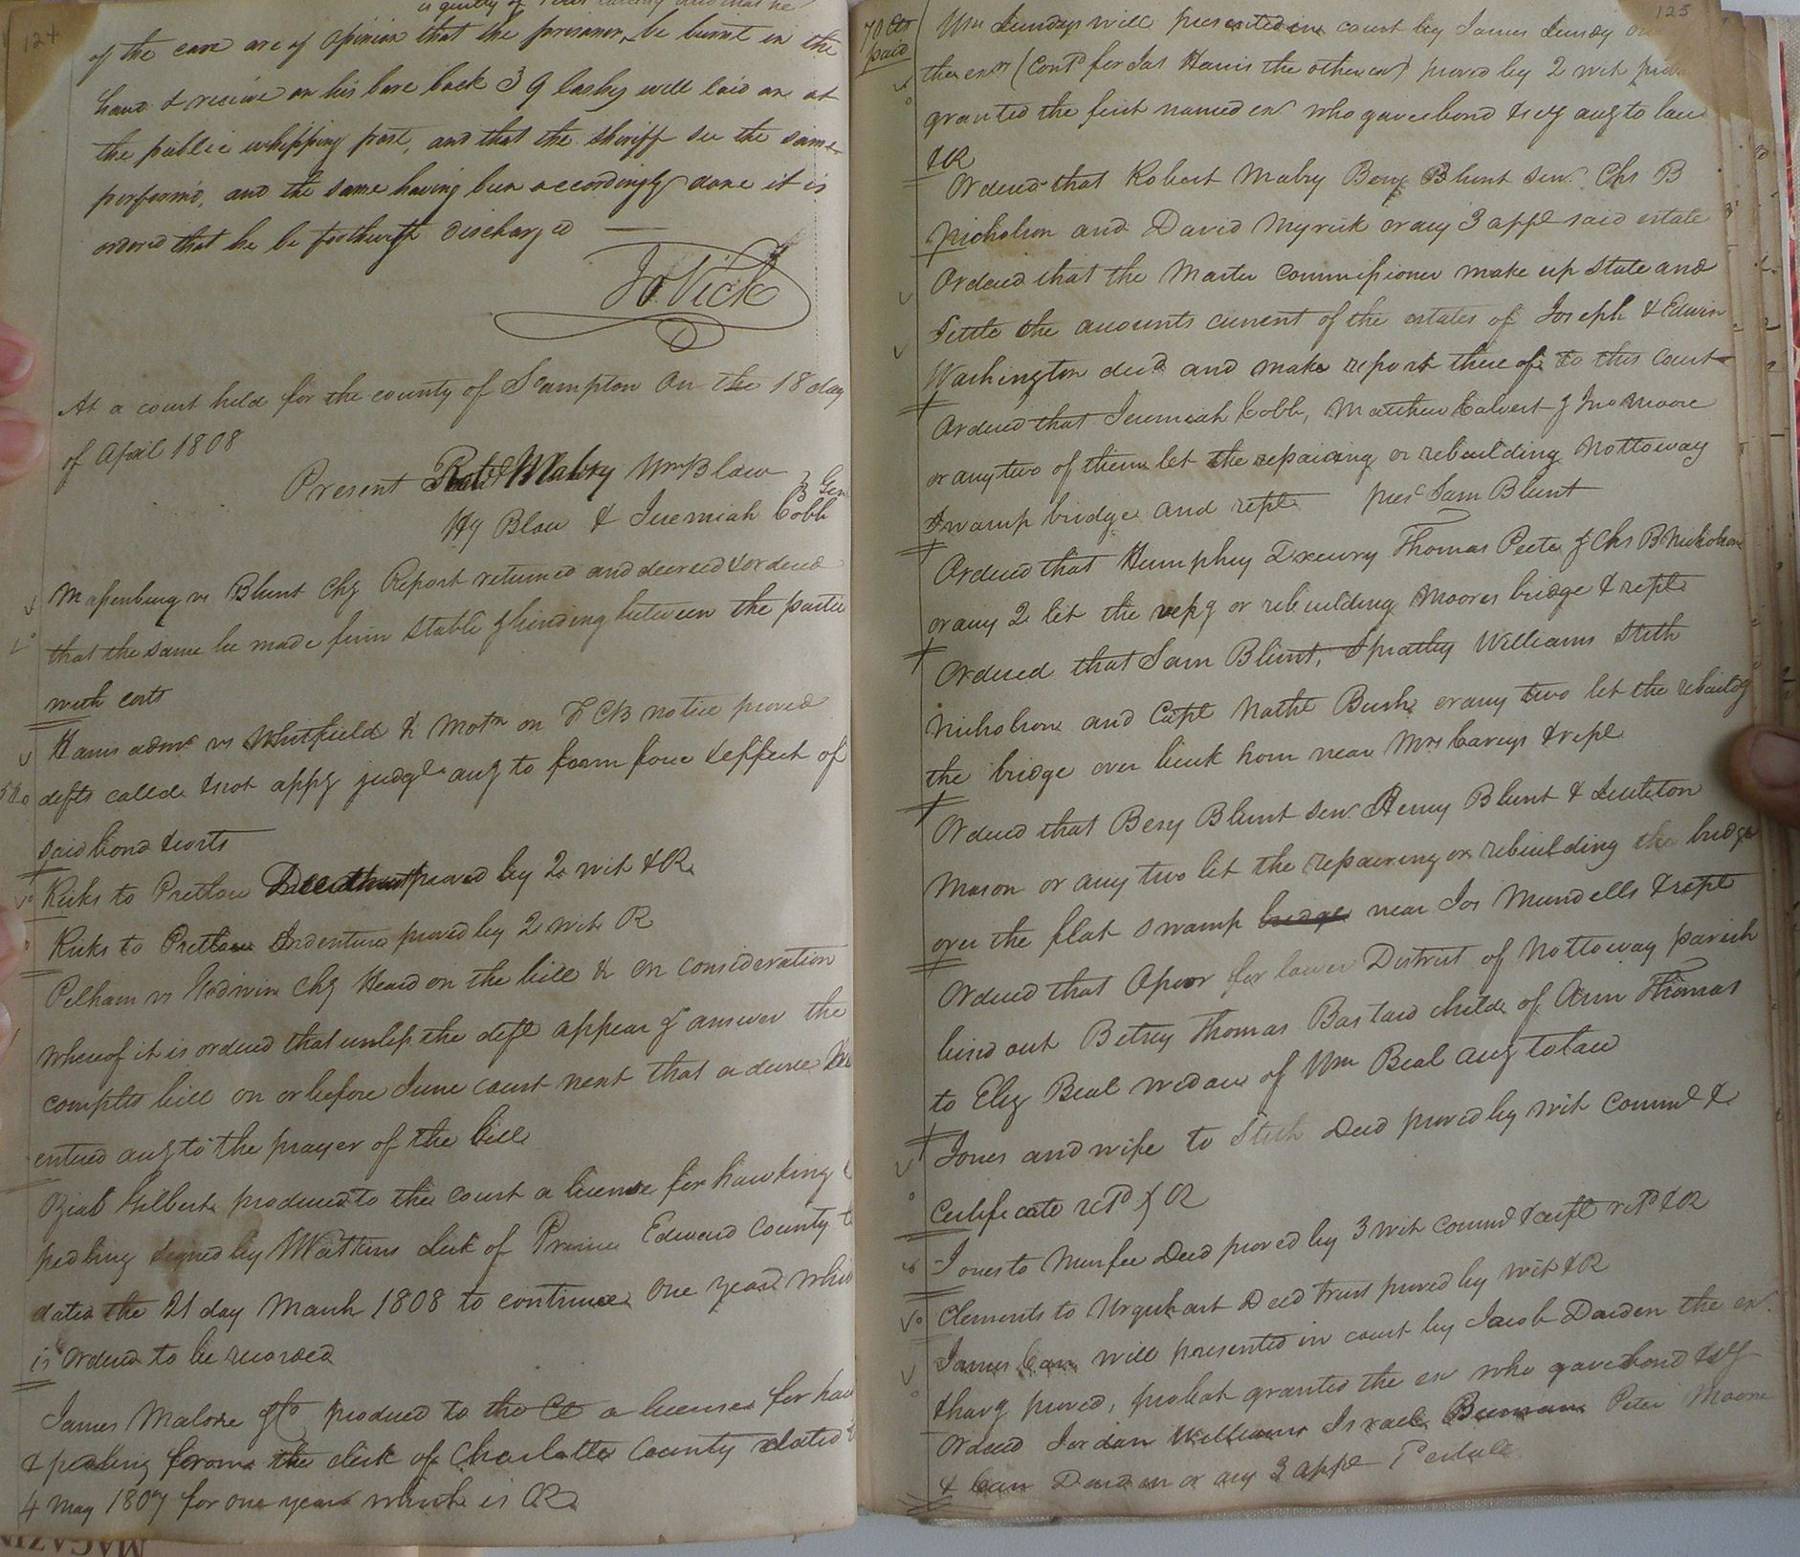 124
is guilty of
of the case are of opinion that the prisoner be burnt in the
hand & receive on his bare back 39 lashes well laid on at
the public whipping post, and that the sheriff see the same
performd, and the same having been accordingly done it is
ordered that he be forthwith discharged
Jo Vick
At a court held for the county of S'ampton on the 18 day
of April 1808
Present Robt Mabry Wm Blow } Gen
Hy Blow & Jeremiah Cobb
Massenburg vs Blunt Chy Report returned and decreed & ordered
that the same be made firm stable & binding between the partie
with costs
Harris admr vs Whitfield & Motn on F C B notice proved
defts called & not appg judgt aug to form force & effect of
said bond & costs
Ricks to Pretlow proved by 2 wit & R
Ricks to Pretlow Indenture proved by 2 wit R
Pelham vs Godwin Chy Heard on the bill & on consideration
whereof it is ordered that unless the deft appear & answer the
complts bill on or before June court next that a decree be
entered aug to the prayer of the bill
Gilbert produced to the court a license for hawking &
pedling signed by Watkins clerk of Prince Edward County
dated the 21 day March 1808 to continue one year whic
is ordered to be recorded
James Malone & Co produced to the Ct a license for haw
& pedling from the clerk of Charlotte County dated
4 May 1807 for one year which is OR
125
70 cts
paid
Wm Lundys will presented in court by James Lundy one
the exrs (Contd for Jas Harris the other ex) proved by 2 wit
granted the first named ex who gave bond & sey aug to law
& R
Ordered that Robert Mabry Benj Blunt senr Chs B
Nicholson and David Myrick or any 3 appr said estate
Ordered that the Master commissioner make up state and
settle the accounts current of the estates of Joseph & Edwin
Washington decd and make report there of to this court
Ordered that Jeremiah Cobb, Matthew Calvert & Jno Moore
or any two of them let the repairing or rebuilding Nottoway
swamp bridge and rept pres Sam Blunt
Ordered that Humphrey Drewry Thomas Peete & Chs B Nicholson
or any 2 let the repg or rebuilding Moores bridge & rept
Ordered that Sam Blunt, Spratley Williams Stith
Nicholson and Capt Nathl Bush or any two let the rebuildg
the bridge over horn near Mrs Careys & rept
Ordered that Benj Blunt senr Henry Blunt & Littleton
Mason or any two let the repairing or rebuilding the bridge
over the flat swamp bridge near Jos Mundells & rept
Ordered that Opoor for lower District of Nottoway parish
bind out Betsey Thomas Bastard child of Ann Thomas
to Eliz Beal widow of Wm Beal aug to law
Jones and wife to Stith Deed proved by wit commd &
Certificate retd & R
Jones to Murfee Deed proved by 3 wit commd & certf retd & R
Clements to Urquhart Deed trust proved by wit & R
James Carr will presented in court by Jacob Darden the ex
thereof proved, probat granted the ex who gave bond & sey
Ordered Jordan Williams Israel Peter Moore
& Carr Darden or any 3 appr